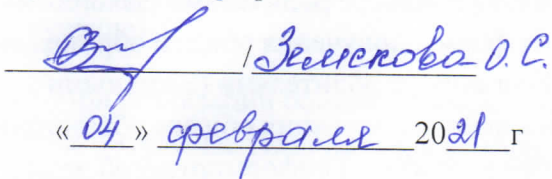 / Земскова О.С.
« 04 » февраля 2021 г